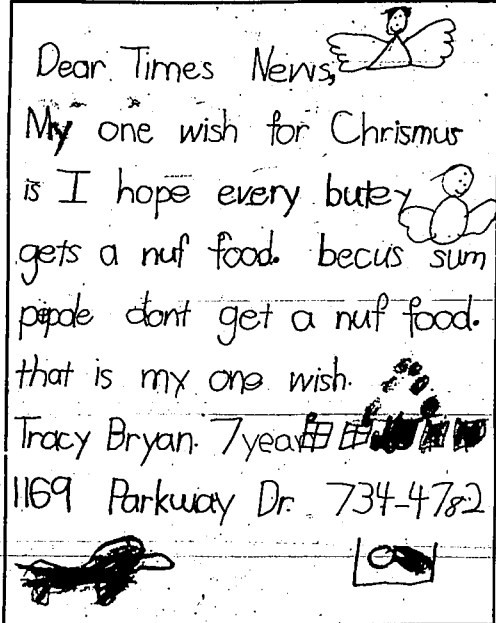 Dear Times News,
My one wish for Chrismus
is I hope every butey
gets a nuf food. becus sum
pepole dont get a nuf food.
that is my one wish.
Tracy Bryan. 7 year
1169 Parkway Dr. 734-4782